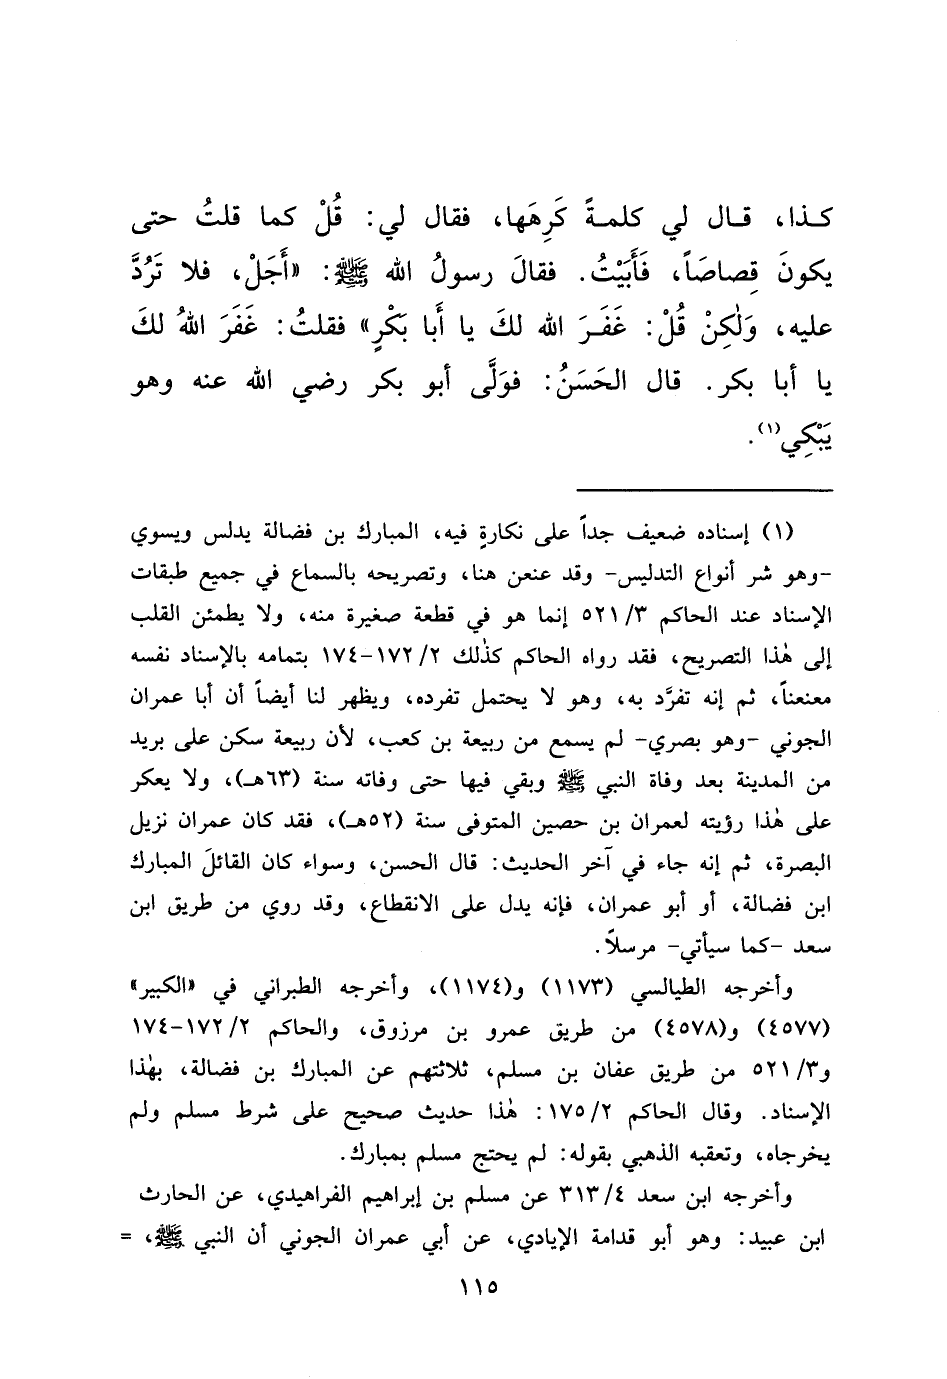 كـذا، قـال لي كلمـةً كَرِهَها، فقال لي: قُلْ كما قلتُ حتى
يكونَ قِصاصَاً، فَأَبَيْتُ. فقالَ رسولُ الله ﷺ: «أَجَلْ، فلا تَرُدَّ
عليه، وَلٰكِنْ قُلْ: غَفَـرَ الله لكَ يا أَبا بَكْرٍ» فقلتُ: غَفَرَ اللهُ لكَ
يا أبا بكر. قال الحَسَنُ: فوَلَّى أبو بكر رضي الله عنه وهو
يَبْكِي(١).
(١) إسناده ضعيف جداً على نكارةٍ فيه، المبارك بن فضالة يدلس ويسوي
-وهو شر أنواع التدليس- وقد عنعن هنا، وتصريحه بالسماع في جميع طبقات
الإسناد عند الحاكم ٥٢١/٣ إنما هو في قطعة صغيرة منه، ولا يطمئن القلب
إلى هٰذا التصريح، فقد رواه الحاكم كذٰلك ١٧٢/٢-١٧٤ بتمامه بالإسناد نفسه
معنعناً، ثم إنه تفرَّد به، وهو لا يحتمل تفرده، ويظهر لنا أيضاً أن أبا عمران
الجوني -وهو بصري- لم يسمع من ربيعة بن كعب، لأن ربيعة سكن على بريد
من المدينة بعد وفاة النبي ﷺ وبقي فيها حتى وفاته سنة (٦٣هـ)، ولا يعكر
على هٰذا رؤيته لعمران بن حصين المتوفى سنة (٥٢هـ)، فقد كان عمران نزيل
البصرة، ثم إنه جاء في آخر الحديث: قال الحسن، وسواء كان القائلَ المبارك
ابن فضالة، أو أبو عمران، فإنه يدل على الانقطاع، وقد روي من طريق ابن
سعد -كما سيأتي- مرسلاً.
وأخرجه الطيالسي (١١٧٣) و(١١٧٤)، وأخرجه الطبراني في «الكبير»
(٤٥٧٧) و(٤٥٧٨) من طريق عمرو بن مرزوق، والحاكم ١٧٢/٢-١٧٤
و٥٢١/٣ من طريق عفان بن مسلم، ثلاثتهم عن المبارك بن فضالة، بهٰذا
الإسناد. وقال الحاكم ١٧٥/٢: هٰذا حديث صحيح على شرط مسلم ولم
يخرجاه، وتعقبه الذهبي بقوله: لم يحتج مسلم بمبارك.
وأخرجه ابن سعد ٣١٣/٤ عن مسلم بن إبراهيم الفراهيدي، عن الحارث
ابن عبيد: وهو أبو قدامة الإيادي، عن أبي عمران الجوني أن النبي ﷺ، =
١١٥